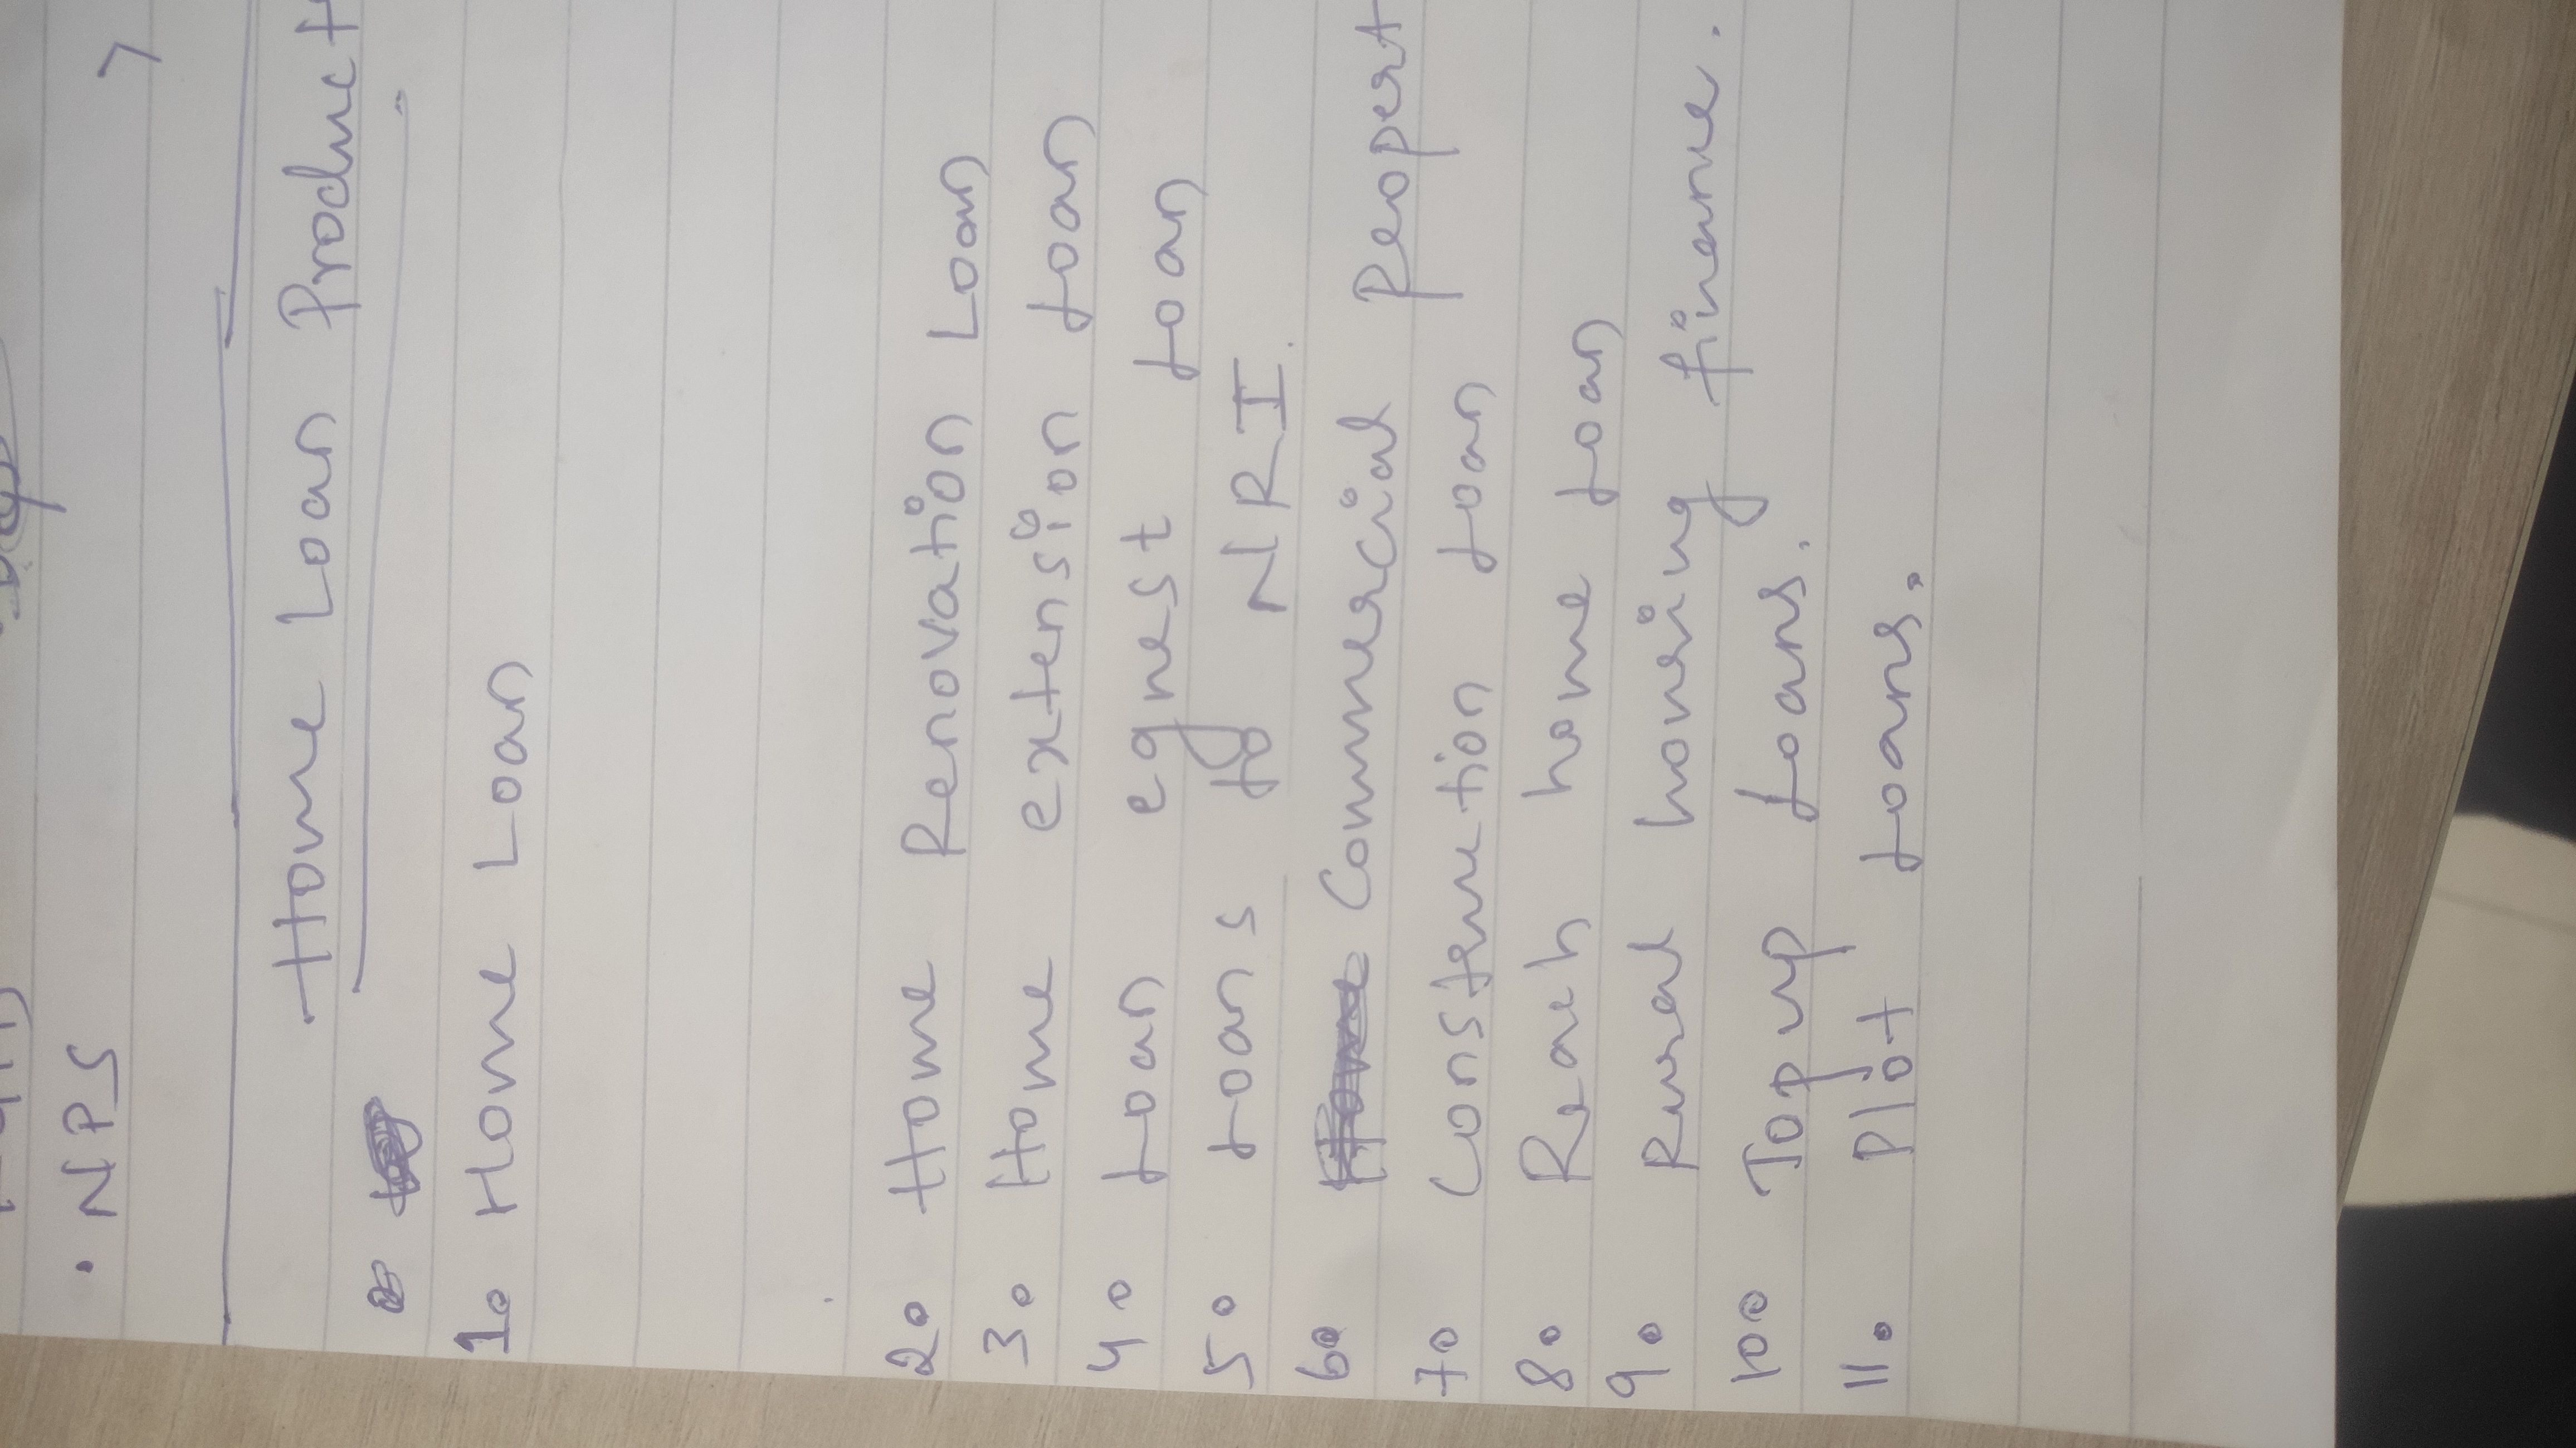 . NPS
Home Loan Product
1. Home Loan
2. Home Renovation Loan
3. Home extension Loan
4. Loan egnest Loan
5. Loans to NRI.
6. Commercial Peopert
7. Construction Loan
8. Reach home Loan
9. Rural housing finance.
10. Top up Loans.
11. Plot Loans.